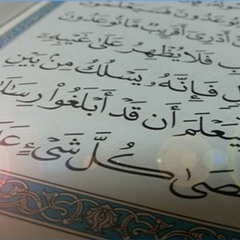 أَدْرِىٓ أَقَرِيبٌ مَّا تُوعَدُونَ
فَلَا يُظْهِرُ عَلَىٰ غَيْبِهِۦٓ
فَإِنَّهُۥ يَسْلُكُ مِنۢ بَيْنِ
لِّيَعْلَمَ أَن قَدْ أَبْلَغُوا۟ رِسَٰلَ
صَىٰ كُلَّ شَىْءٍ عَ